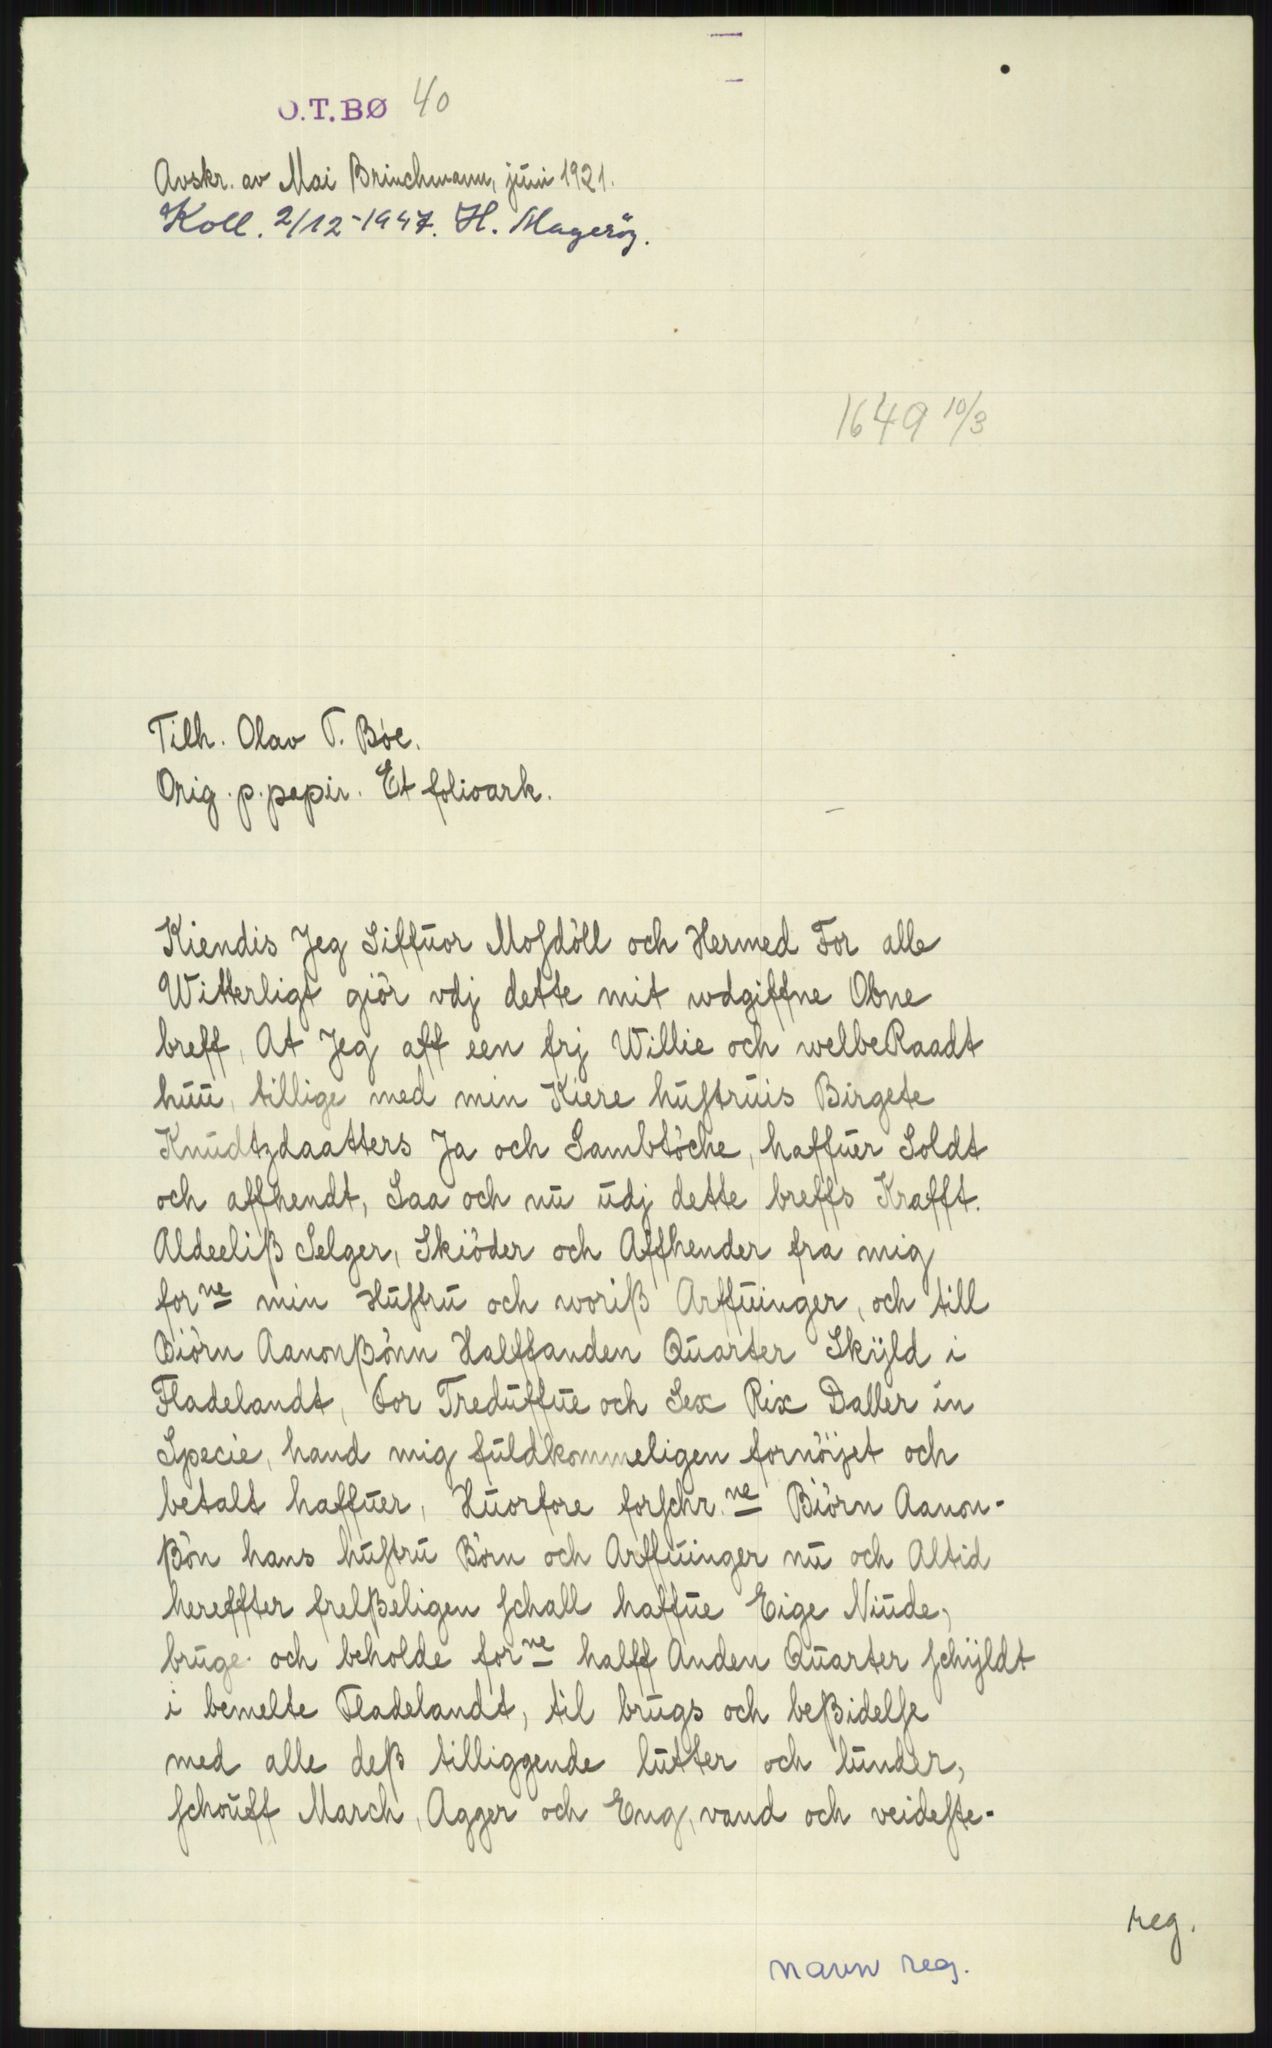 O.T.BØ 40
Avskr. av Mai Brinchmann, juni 1921.
Koll. 2/12-1947. H. Magerøy.
1649 10/3
Tilh. Olav T. Bøe.
Orig. p. papir. Et folioark.
Kiendis Jeg Siffuor Mosdöll och Hermed For alle
Witterligt giör vdj dette mit wdgiffne Obne
breff, At Jeg aff een frj Willie och welbeRaadt
huu, tillige med min Kiere hustruis Birgete
Knudtzdaatters Ja och Sambtöche, haffuer Soldt
och affhendt, Saa och nu udj dette breffs Krafft.
Aldeeliß Selger, Skiöder och Affhender fra mig
forne min Hustru och woriß Arffuinger, och till
Biörn Aanonßönn Halffanden Quarter Skyld i
Fladelandt, for Treduffue och Sex Rix Daller in
Specie, hand mig fuldkommeligen fornöyet och
betalt haffuer, Huorfore forschr.ne Biörn Aanon-
ßön hans hustru Börn och Arffuinger nu och Altid
hereffter frelßeligen schall haffue Eige Niude,
bruge och beholde forne halff Anden Quarter schyldt
i bemelte Fladelandt, til brugs och beßidelse
med alle deß tilliggende lutter och lunder,
schouff March, Agger och Eng, vand och veideste-
reg.
navn reg.